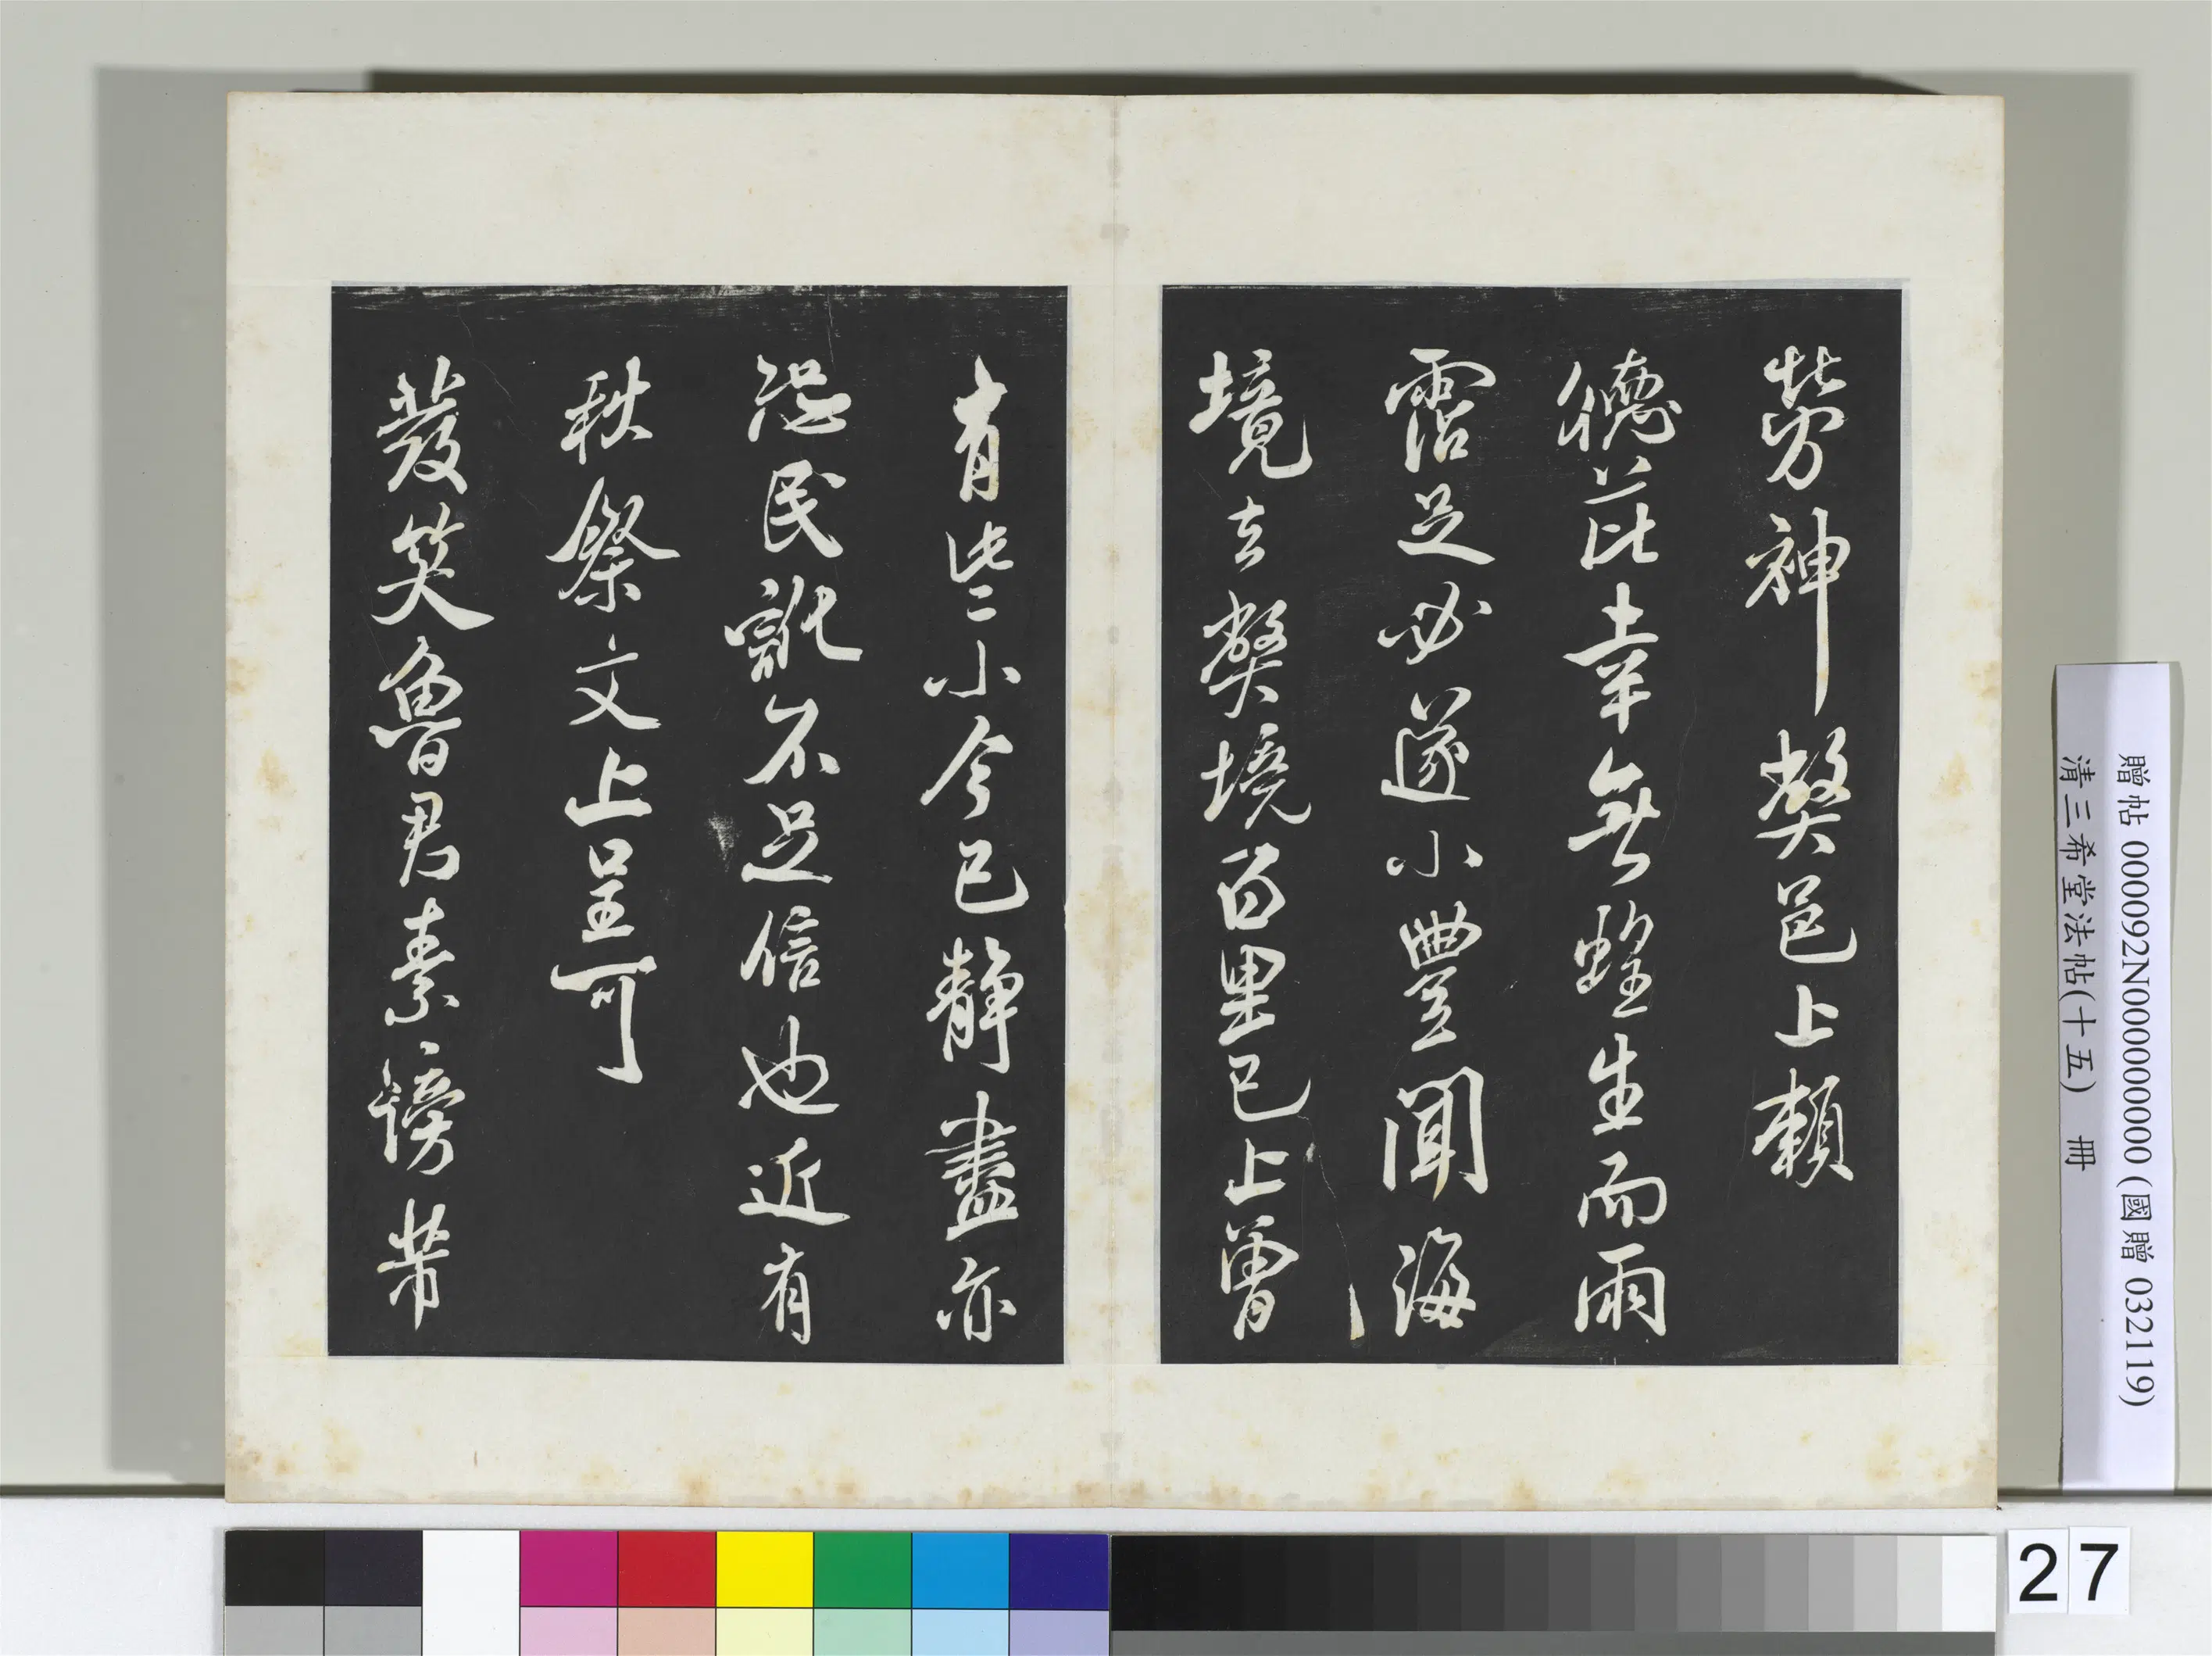 勞神弊邑上賴
德芘幸無蝗生而雨
霑足必遂小豐聞海
境去弊境百里已上曾
有些小今已靜盡亦
恐民訛不足信也近有
秋祭文上呈可
發笑魯君素謗芾
贈帖 000092N000000000 (國贈 032119)
清三希堂法帖(十五) 冊
27